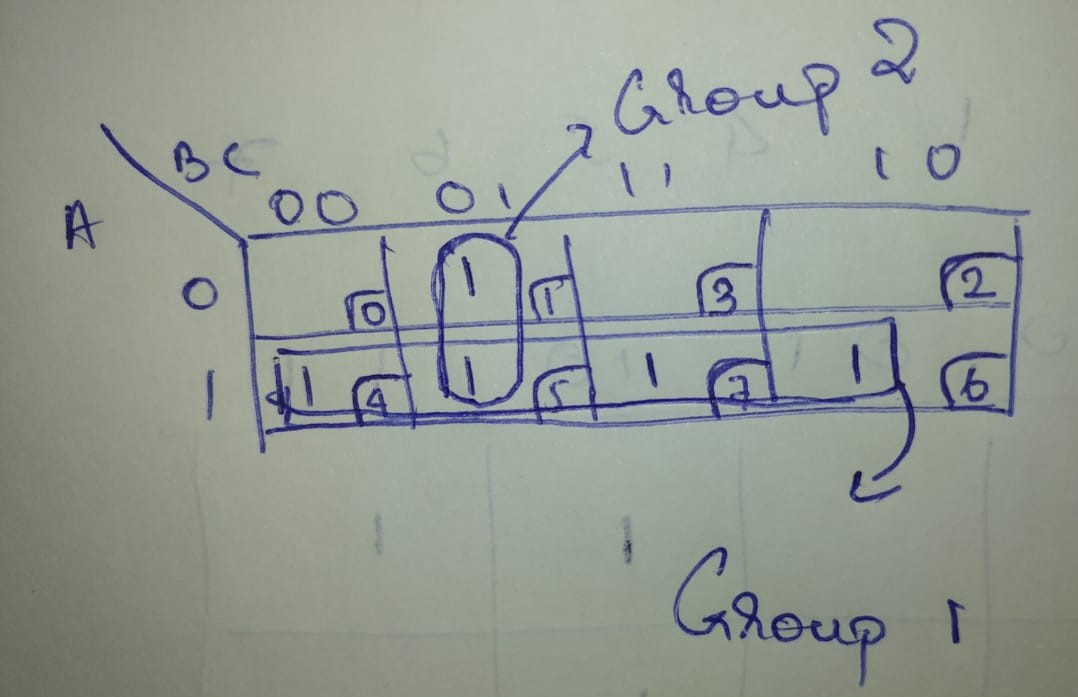 Group 2
BC
00 01 11 10
A
0 1 0 1 3 2
1 1 4 1 5 1 7 1 6
Group 1